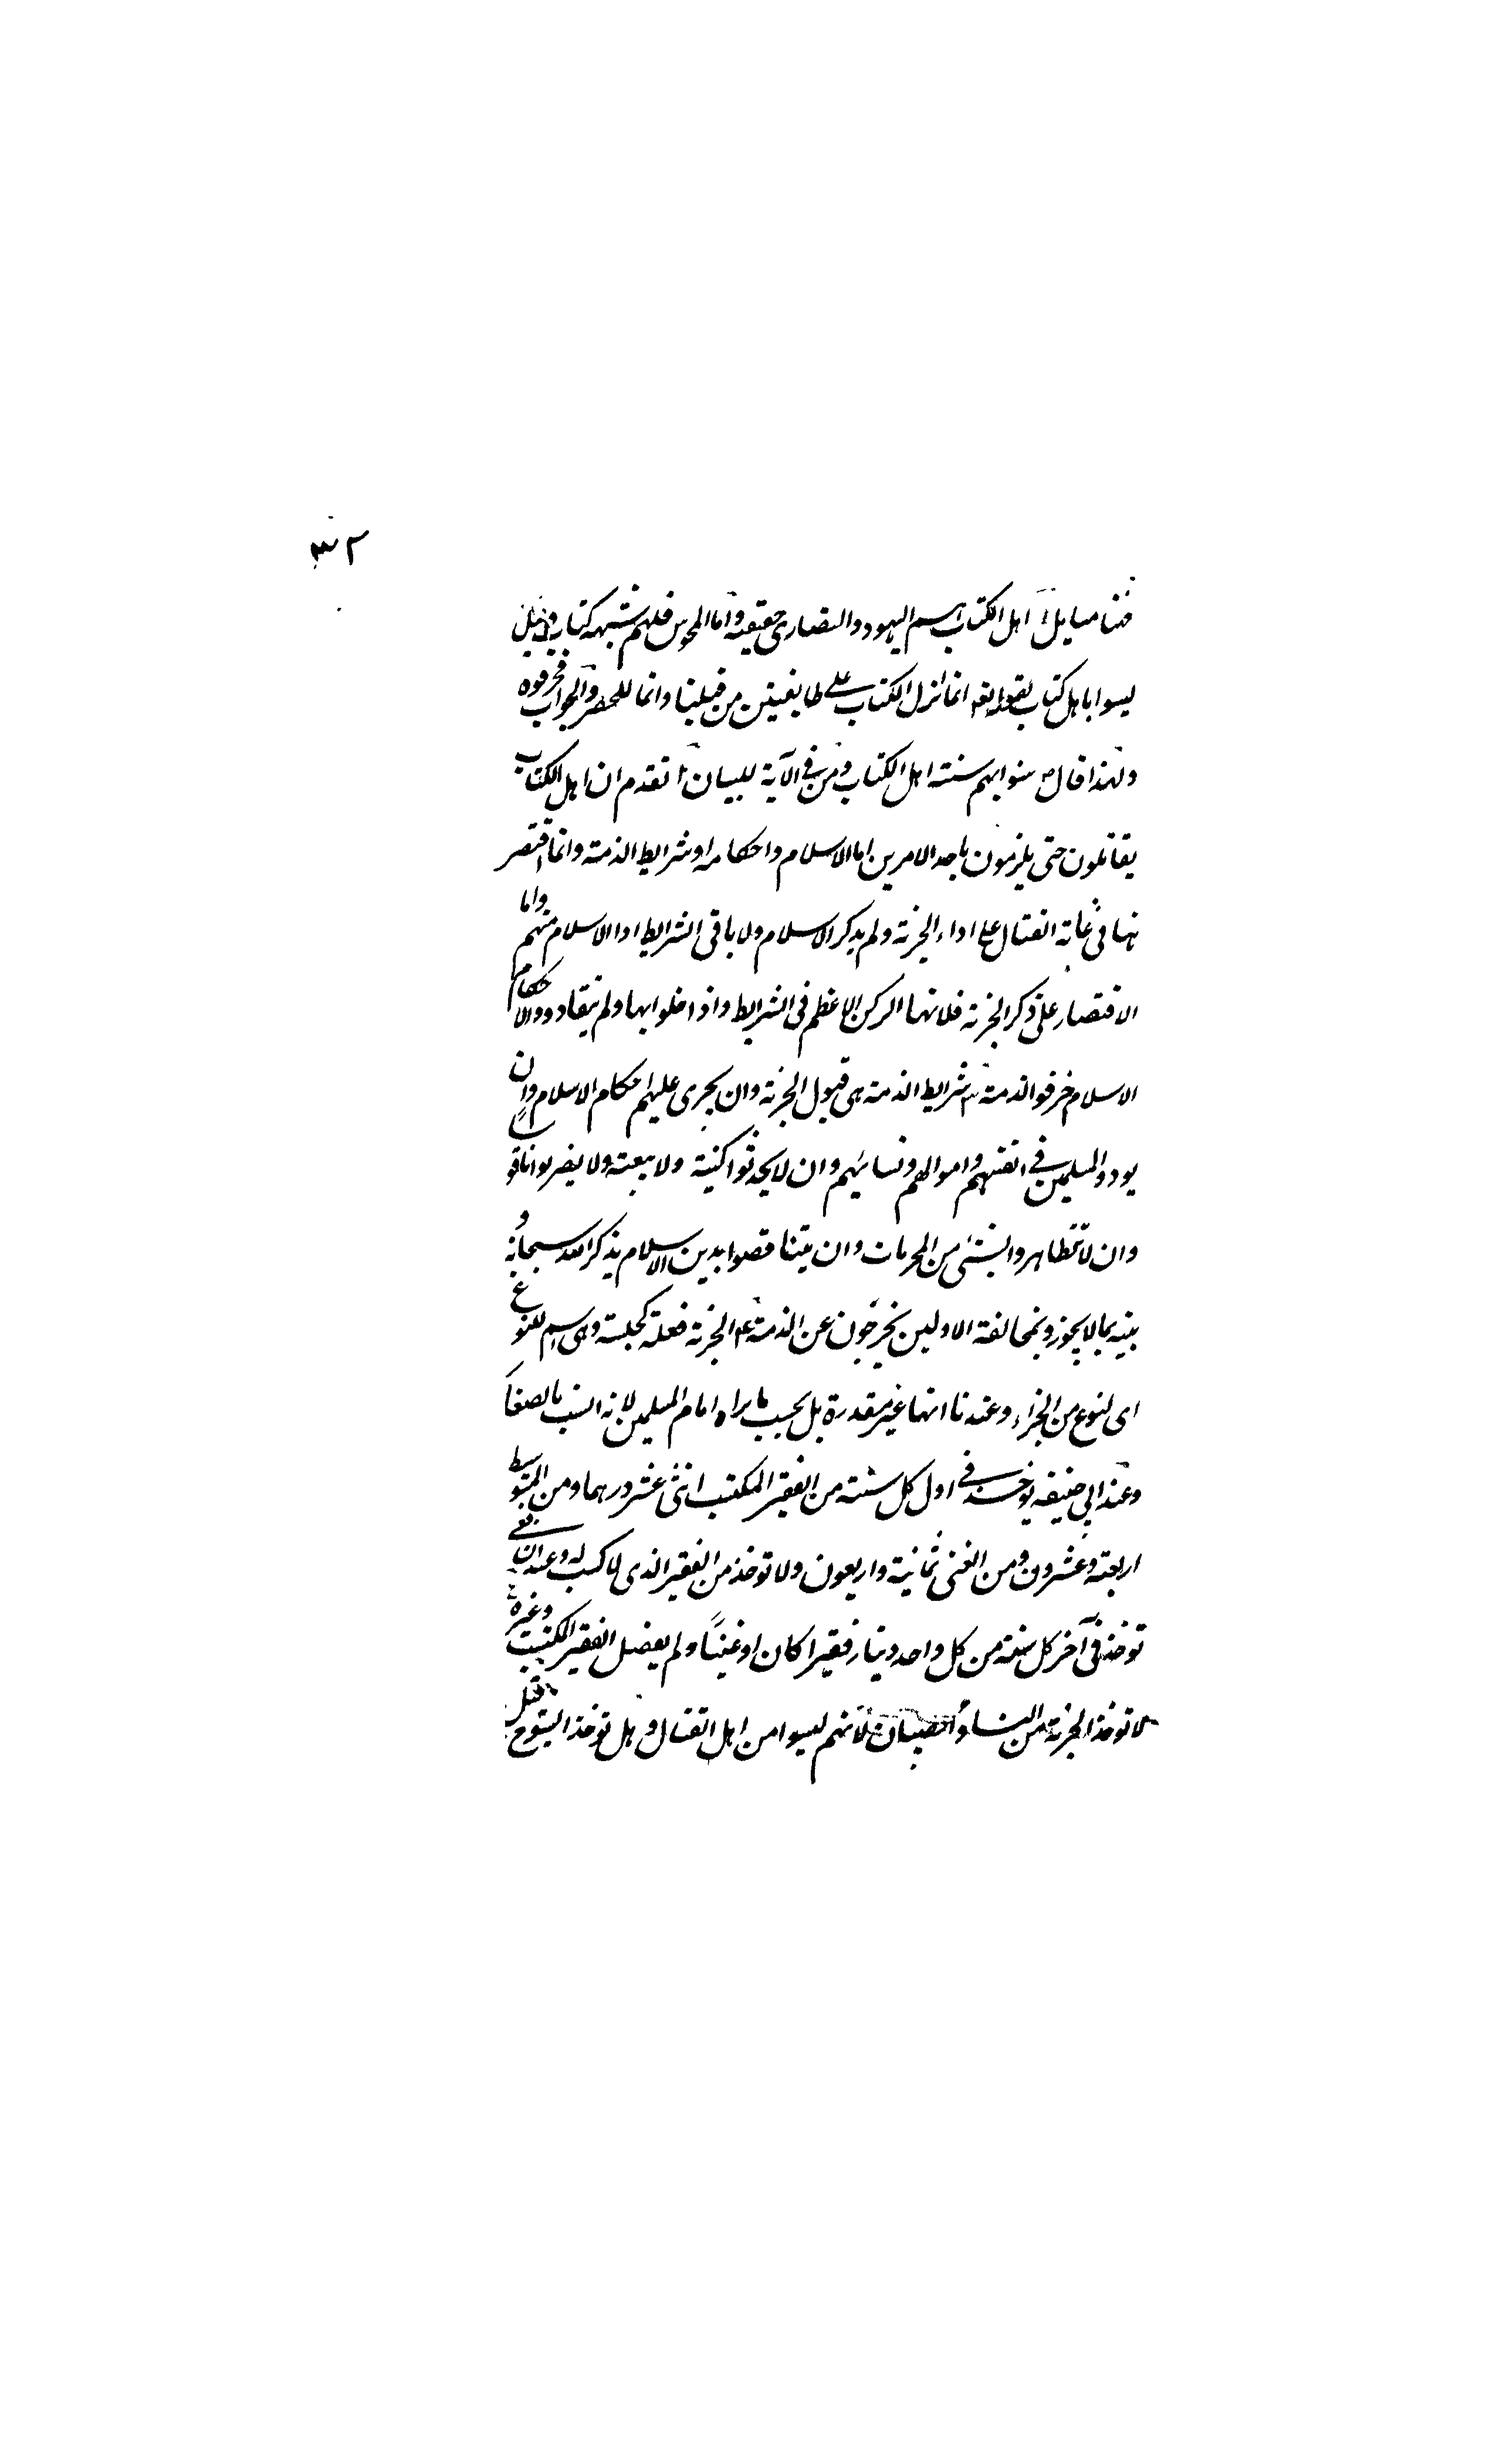 ٣٢
هنا مسايل ا اهل الكتاب اسم اليهود والنصارى حقيقة واما المجوس فلهم شبهة كتاب وقيل
ليسوا باهل كتاب لقوله تعه انما انزل الكتاب على طايفتين من قبلنا وانما للحصر والجواب فحرفوه
ولهذا قال ص سنوا بهم سنة اهل الكتاب ومن في الآية للبيان ٢ تقدم ان اهل الكتاب
يقاتلون حتى يلزمون باحد الامرين اما الاسلام واحكامه او شرايط الذمة وانما اقتصر
نها في غاية القتال على اداء الجزية ولم يذكر الاسلام ولا باقى الشرايط اذا الاسلام منهم واما
الاقتصار على ذكر الجزية فلانها الركن الاعظم فى الشرايط واذا خلوا بها ولم ينقادوا لاحكام
الاسلام خرقوا الذمة ٣ شرايط الذمة هى قبول الجزية وان يجرى عليهم احكام الاسلام وان لا
يوذوا المسلمين في انفسهم واموالهم ونسائهم وان لا يحدثوا كنيسة ولا بيعة ولا يضربوا ناقو
وان لا تتظاهروا بشئ من المحرمات وان يتناقصوا بدين الاسلام بذكر الله سبحانه و
نبيه بما لا يجوز وبمخالفة الاولين يخرجون عن الذمة ٤ الجزية فعلة كجلسة وهى اسم للنوع
اى لنوع من الجزاء وعندنا انها غير مقدرة بل بحسب ما يراه امام المسلمين لانه انسب بالصغا
وعند ابي حنيفه يوخذ في اول كل سنة من الفقير المكتسب اثنى عشر درهما ومن المتوسط
اربعة وعشرون ومن الغنى ثمانية واربعون ولا توخذ من الفقير الذى لا كسب له وعند الشافعي
توخذ فى آخر كل سنة من كل واحد دينار فقيرا كان او غنيًا ولم يفصل الفقير المكتسب وغيره
لا توخذ الجزية من النساء والصبيان لانهم ليسوا من اهل القتال وهل توخذ الشيوخ قيل